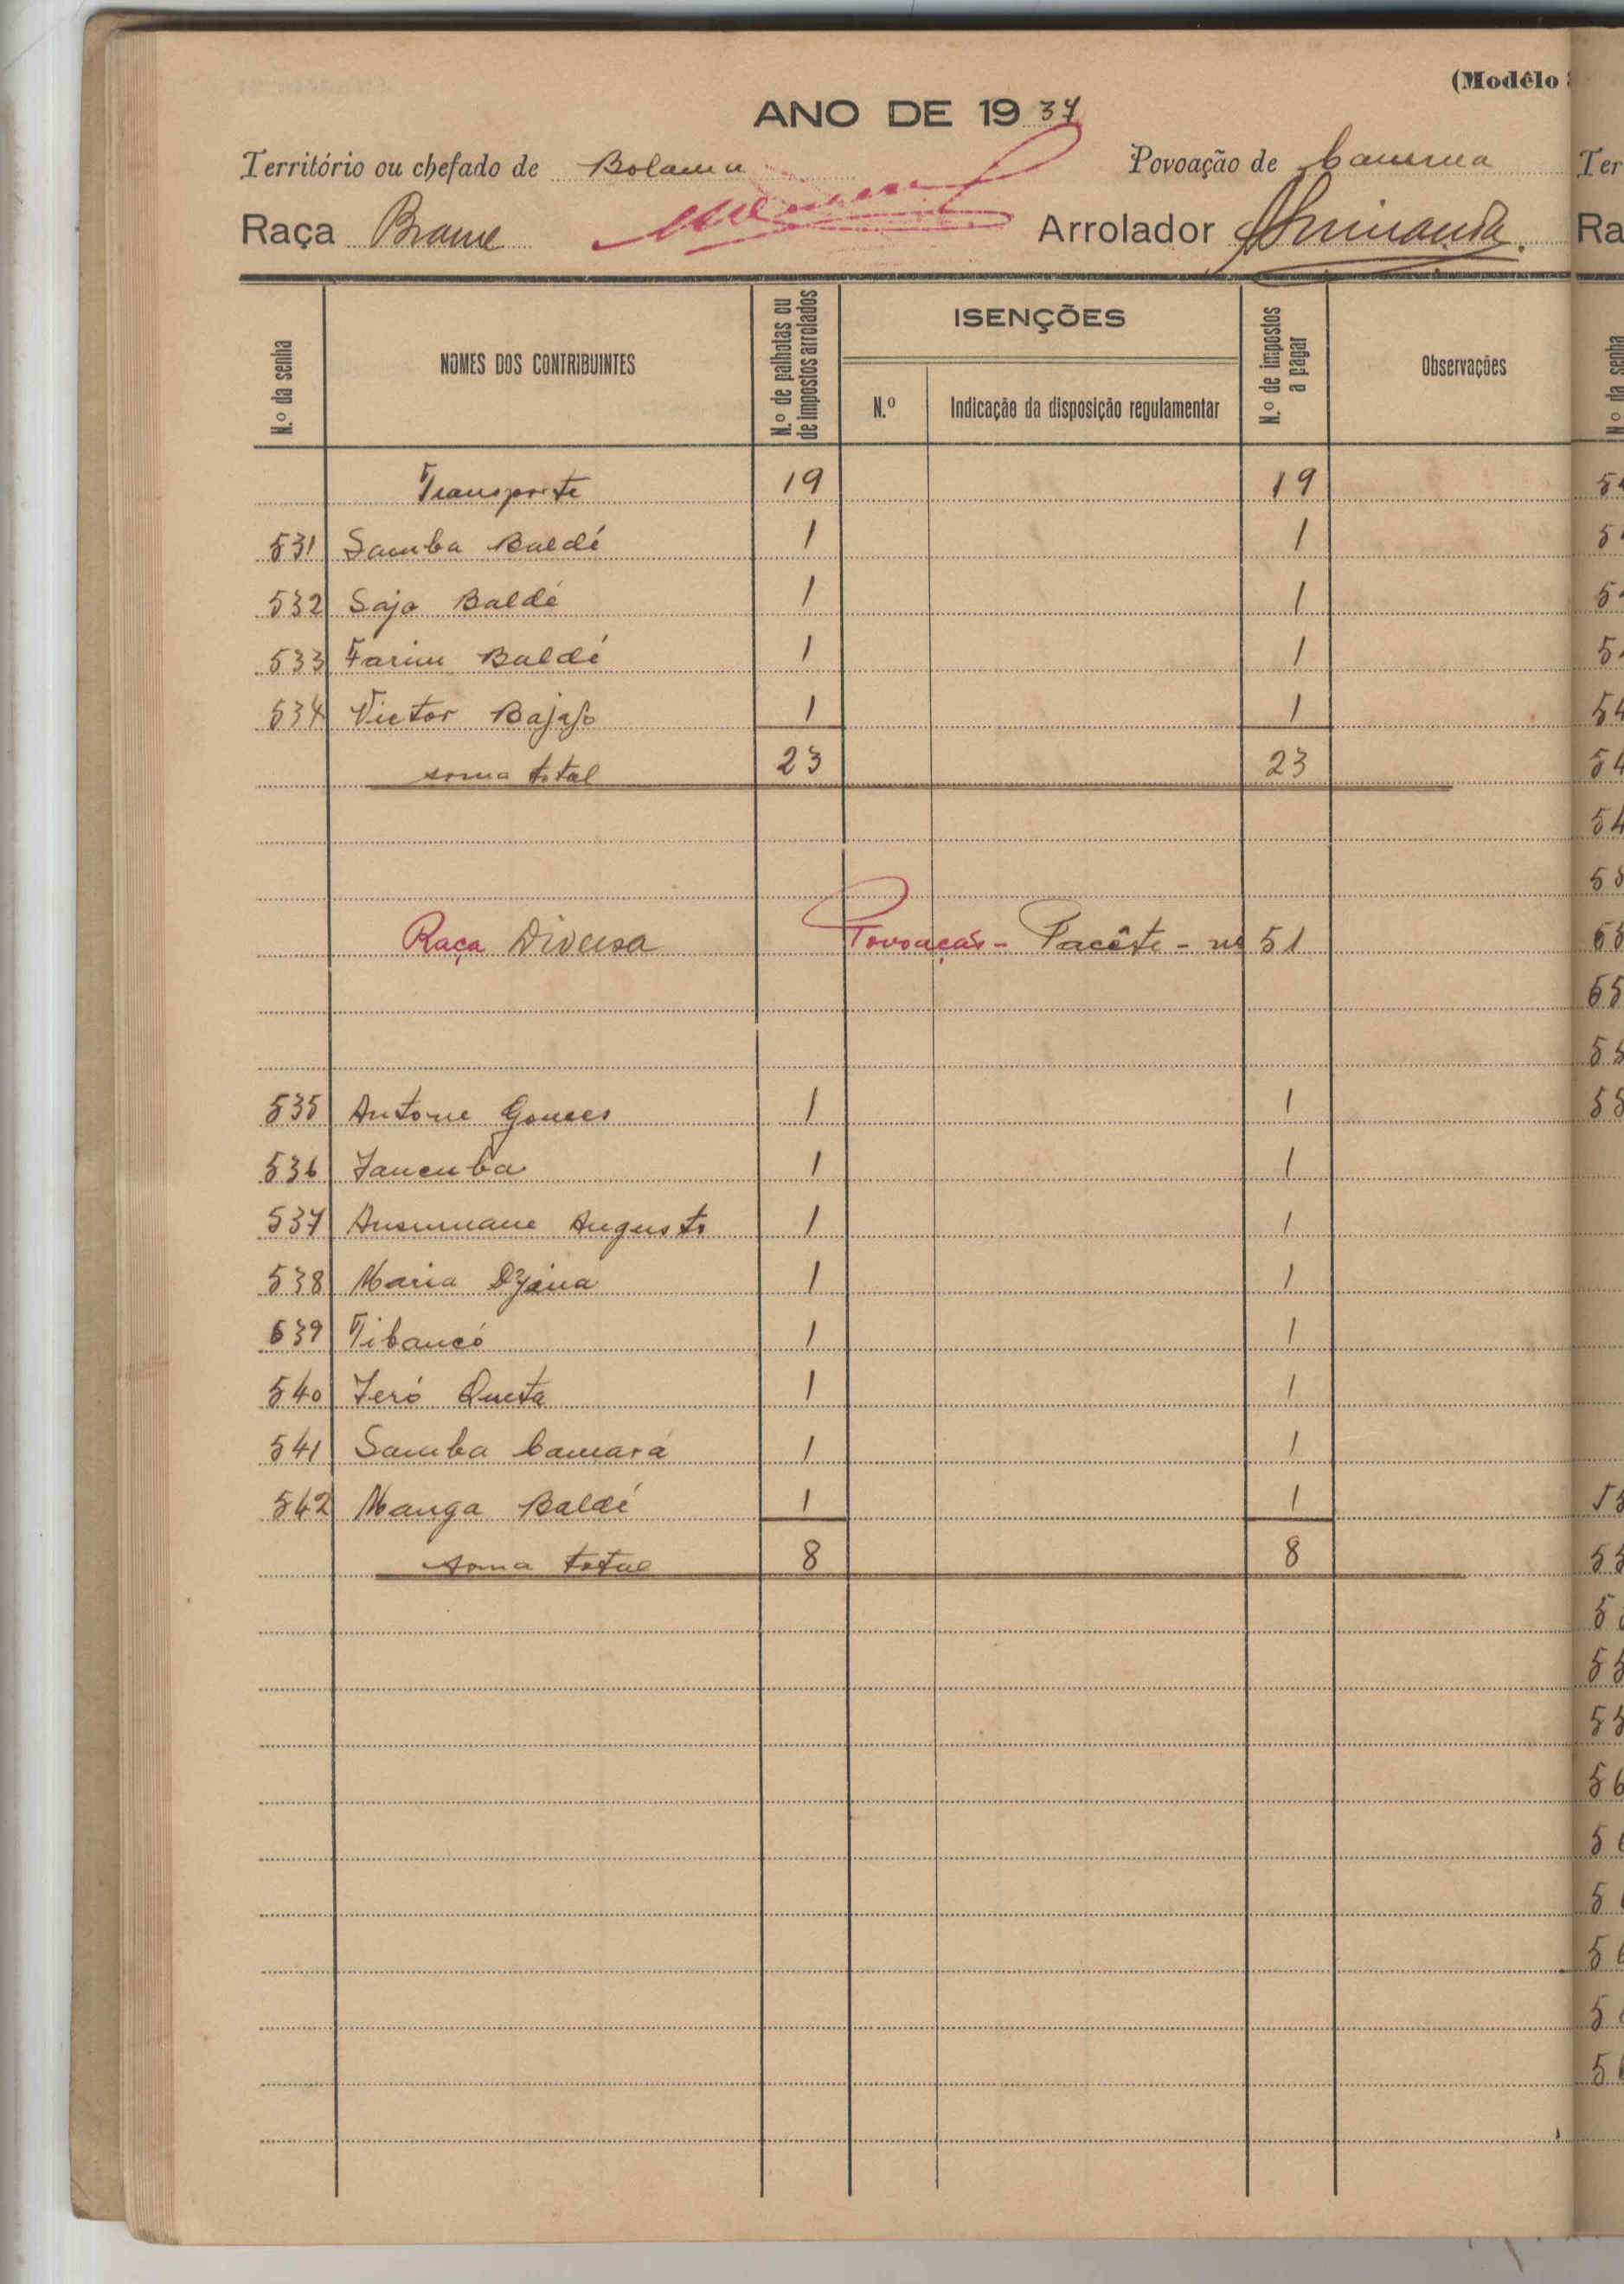 (Modêlo
ANO DE 1937
Território ou chefado de Bolama Povoação de
Raça Brame Arrolador
N.º da senha
NOMES DOS CONTRIBUINTES
N.º de palhotas ou de impostos arrolados
ISENÇÕES
N.º
Indicação da disposição regulamentar
N.º de impostos a pagar
Observações
Transporte 19 19
531 Samba Baldé 1 1
532 Sajo Baldé 1 1
533 Farim Baldé 1 1
534 Victor 1 1
soma total 23 23
Raça Diversa Povoação - - nº 51
535 Antone Gomes 1 1
536 1 1
537 Ansumane Augusto 1 1
538 Maria 1 1
539 Tibancó 1 1
540 Queta 1 1
541 Samba Camará 1 1
542 Manga Baldé 1 1
soma total 8 8